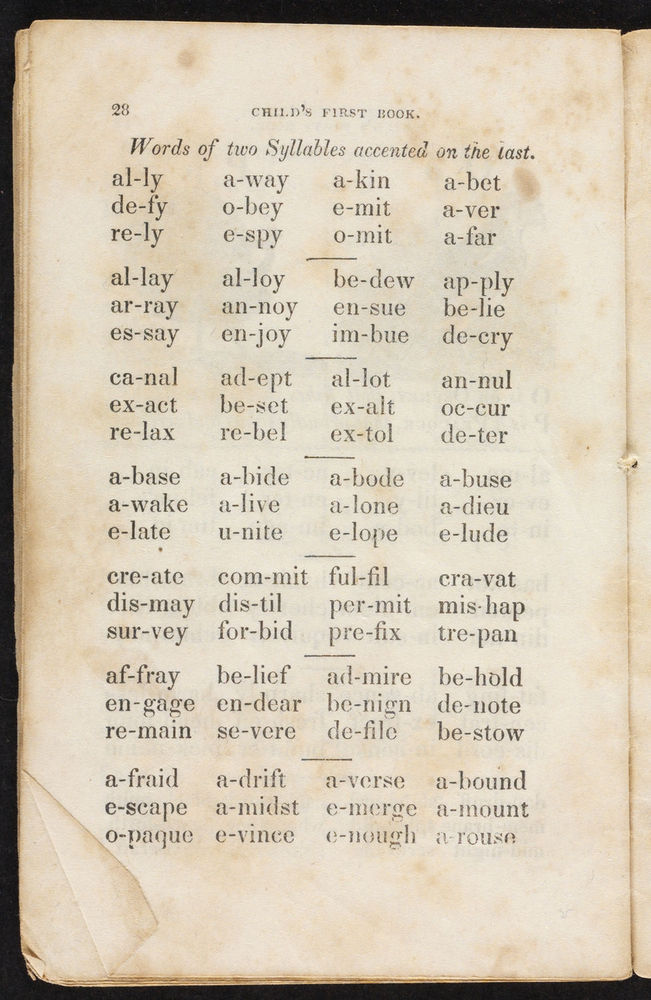 28 CHILD'S FIRST BOOK.
Words of two Syllables accented on the last.
al-ly a-way a-kin a-bet
de-fy o-bey e-mit a-ver
re-ly e-spy o-mit a-far
al-lay al-loy be-dew ap-ply
ar-ray an-noy en-sue be-lie
es-say en-joy im-bue de-cry
ca-nal ad-ept al-lot an-nul
ex-act be-set ex-alt oc-cur
re-lax re-bel ex-tol de-ter
a-base a-bide a-bode a-buse
a-wake a-live a-lone a-dieu
e-late u-nite e-lope e-lude
cre-ate com-mit ful-fil cra-vat
dis-may dis-til per-mit mis-hap
sur-vey for-bid pre-fix tre-pan
af-fray be-lief ad-mire be-hold
en-gage en-dear be-nign de-note
re-main se-vere de-file be-stow
a-fraid a-drift a-verse a-bound
e-scape a-midst e-merge a-mount
o-paque e-vince e-nough a-rouse